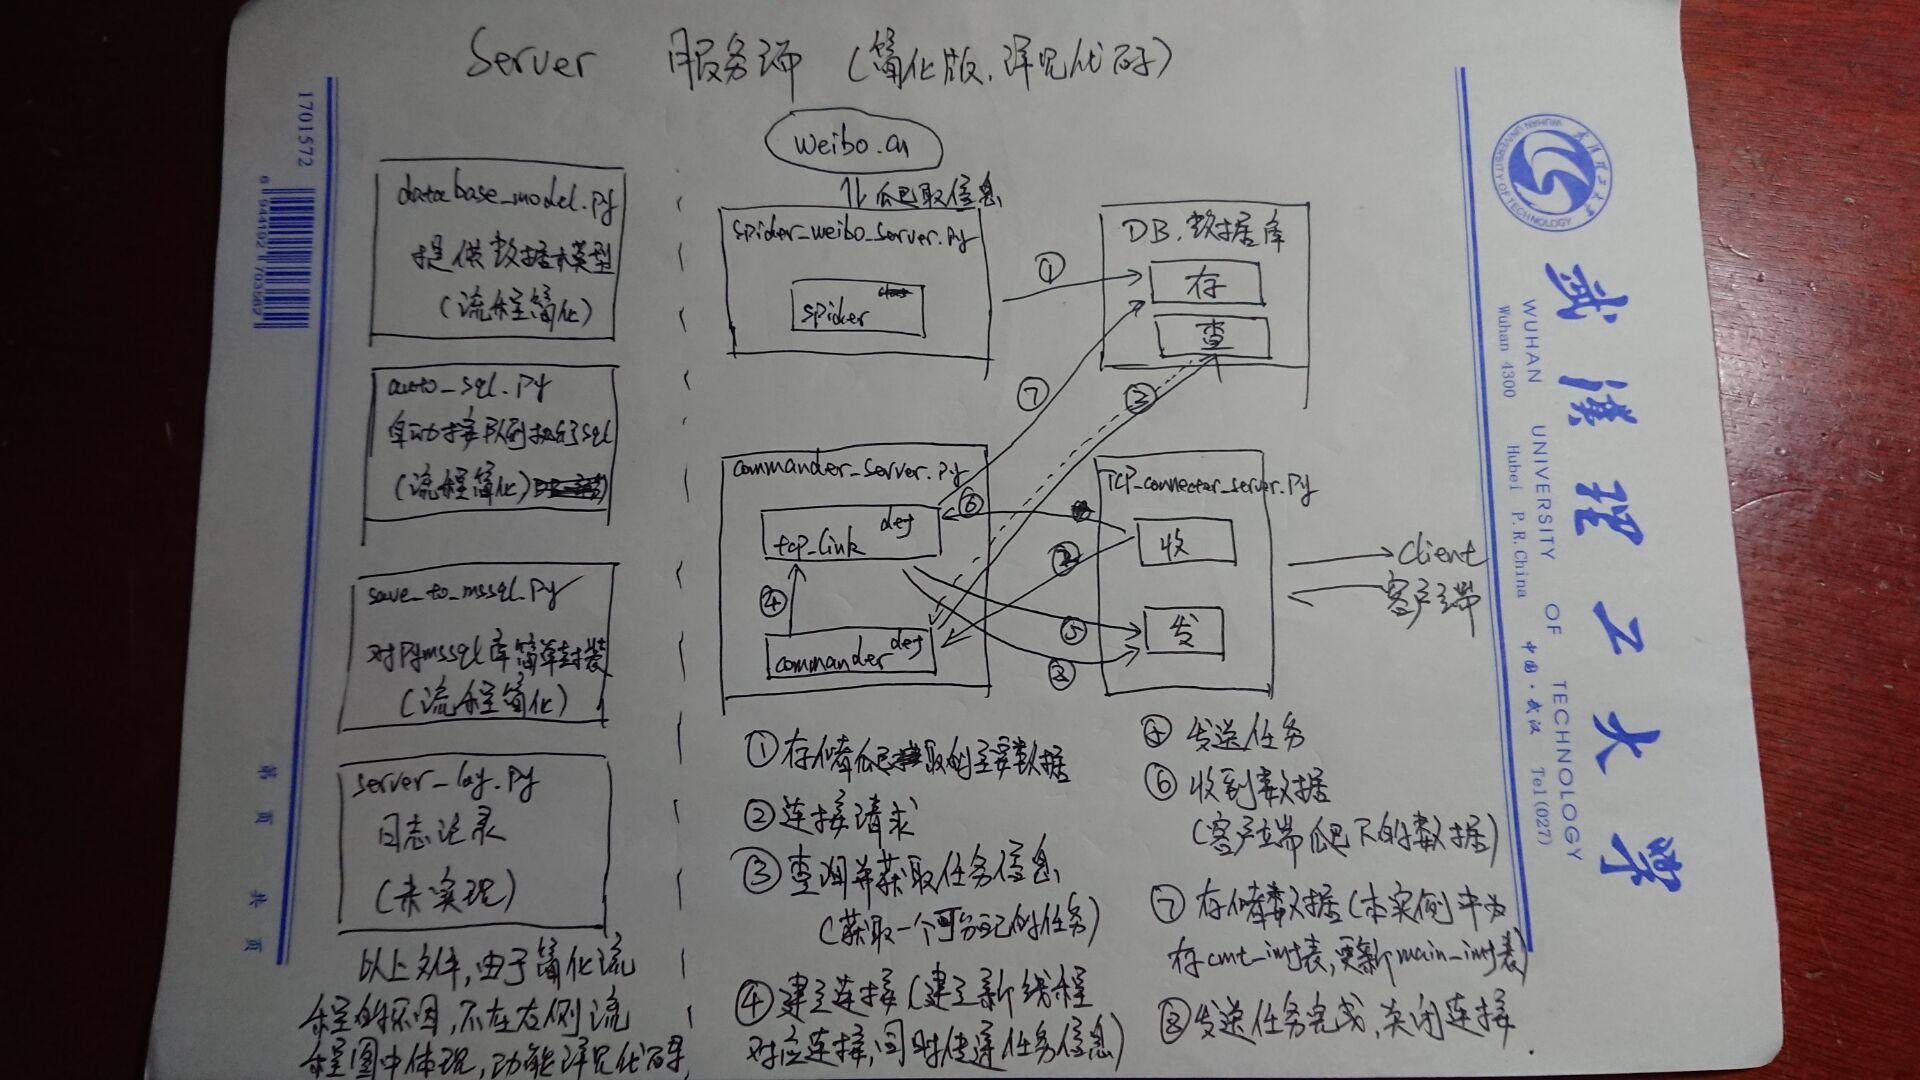 Server 服务端 (简化版,详见代码)
weibo.cn
爬取信息
database_model.py
提供数据模型
(流程简化)
auto_sql.py
自动按队列执行sql
(流程简化)
save_to_mssql.py
对pymssql库简单封装
(流程简化)
server_log.py
日志记录
(未实现)
以上文件,由于简化流
程的原因,不在右侧流
程图中体现,功能详见代码.
spider_weibo_server.py
spider
DB.数据库
存
查
①
⑦
③
commander_server.py
tcp_link def
commander def
④
⑥
②
⑤
⑧
TCP_connector_server.py
收
发
Client
客户端
①存储爬取的主要数据
②连接请求
③查询并获取任务信息
(获取一个可分配的任务)
④建立连接(建立新线程
对应连接,同时传递任务信息)
⑤发送任务
⑥收到数据
(客户端爬下的数据)
⑦存储数据(本实例中为
存cmt_inf表,更新main_inf表)
⑧发送任务完成,关闭连接.
1701572
6 944192 703582
第 页 共 页
WUHAN UNIVERSITY OF TECHNOLOGY
武汉理工大学
武汉理工大学
WUHAN UNIVERSITY OF TECHNOLOGY
Wuhan 4300 Hubei P.R.China 中国·武汉 Tel(027)